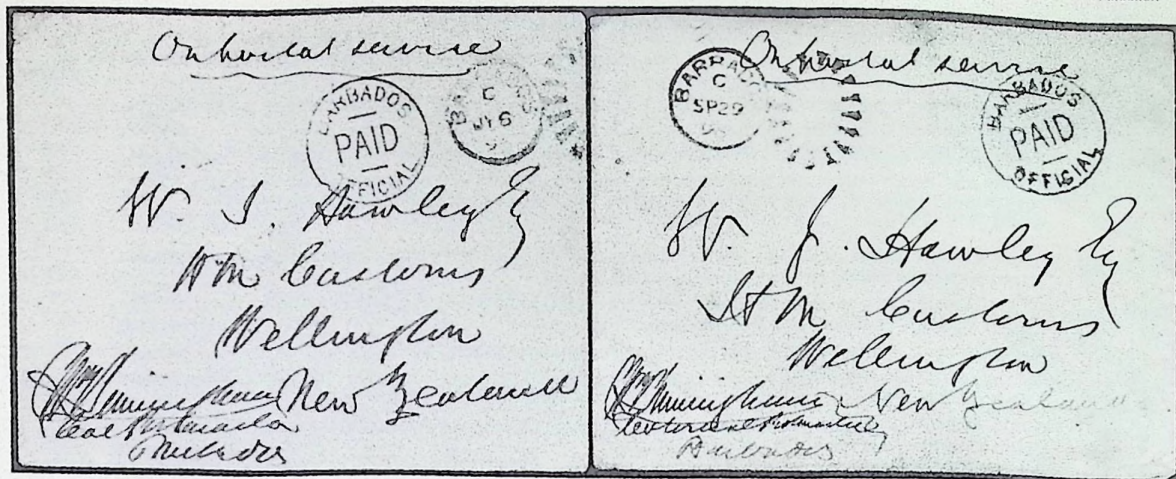 On postal service
BARBADOS
PAID
OFFICIAL
BARBADOS
C
JY 6
W. J. Hawley Esq
H M Customs
Wellington
New Zealand
Barbados
On postal service
BARBADOS
C
SP 29
BARBADOS
PAID
OFFICIAL
W. J. Hawley Esq
H M Customs
Wellington
New Zealand
Colonial Postmaster
Barbados